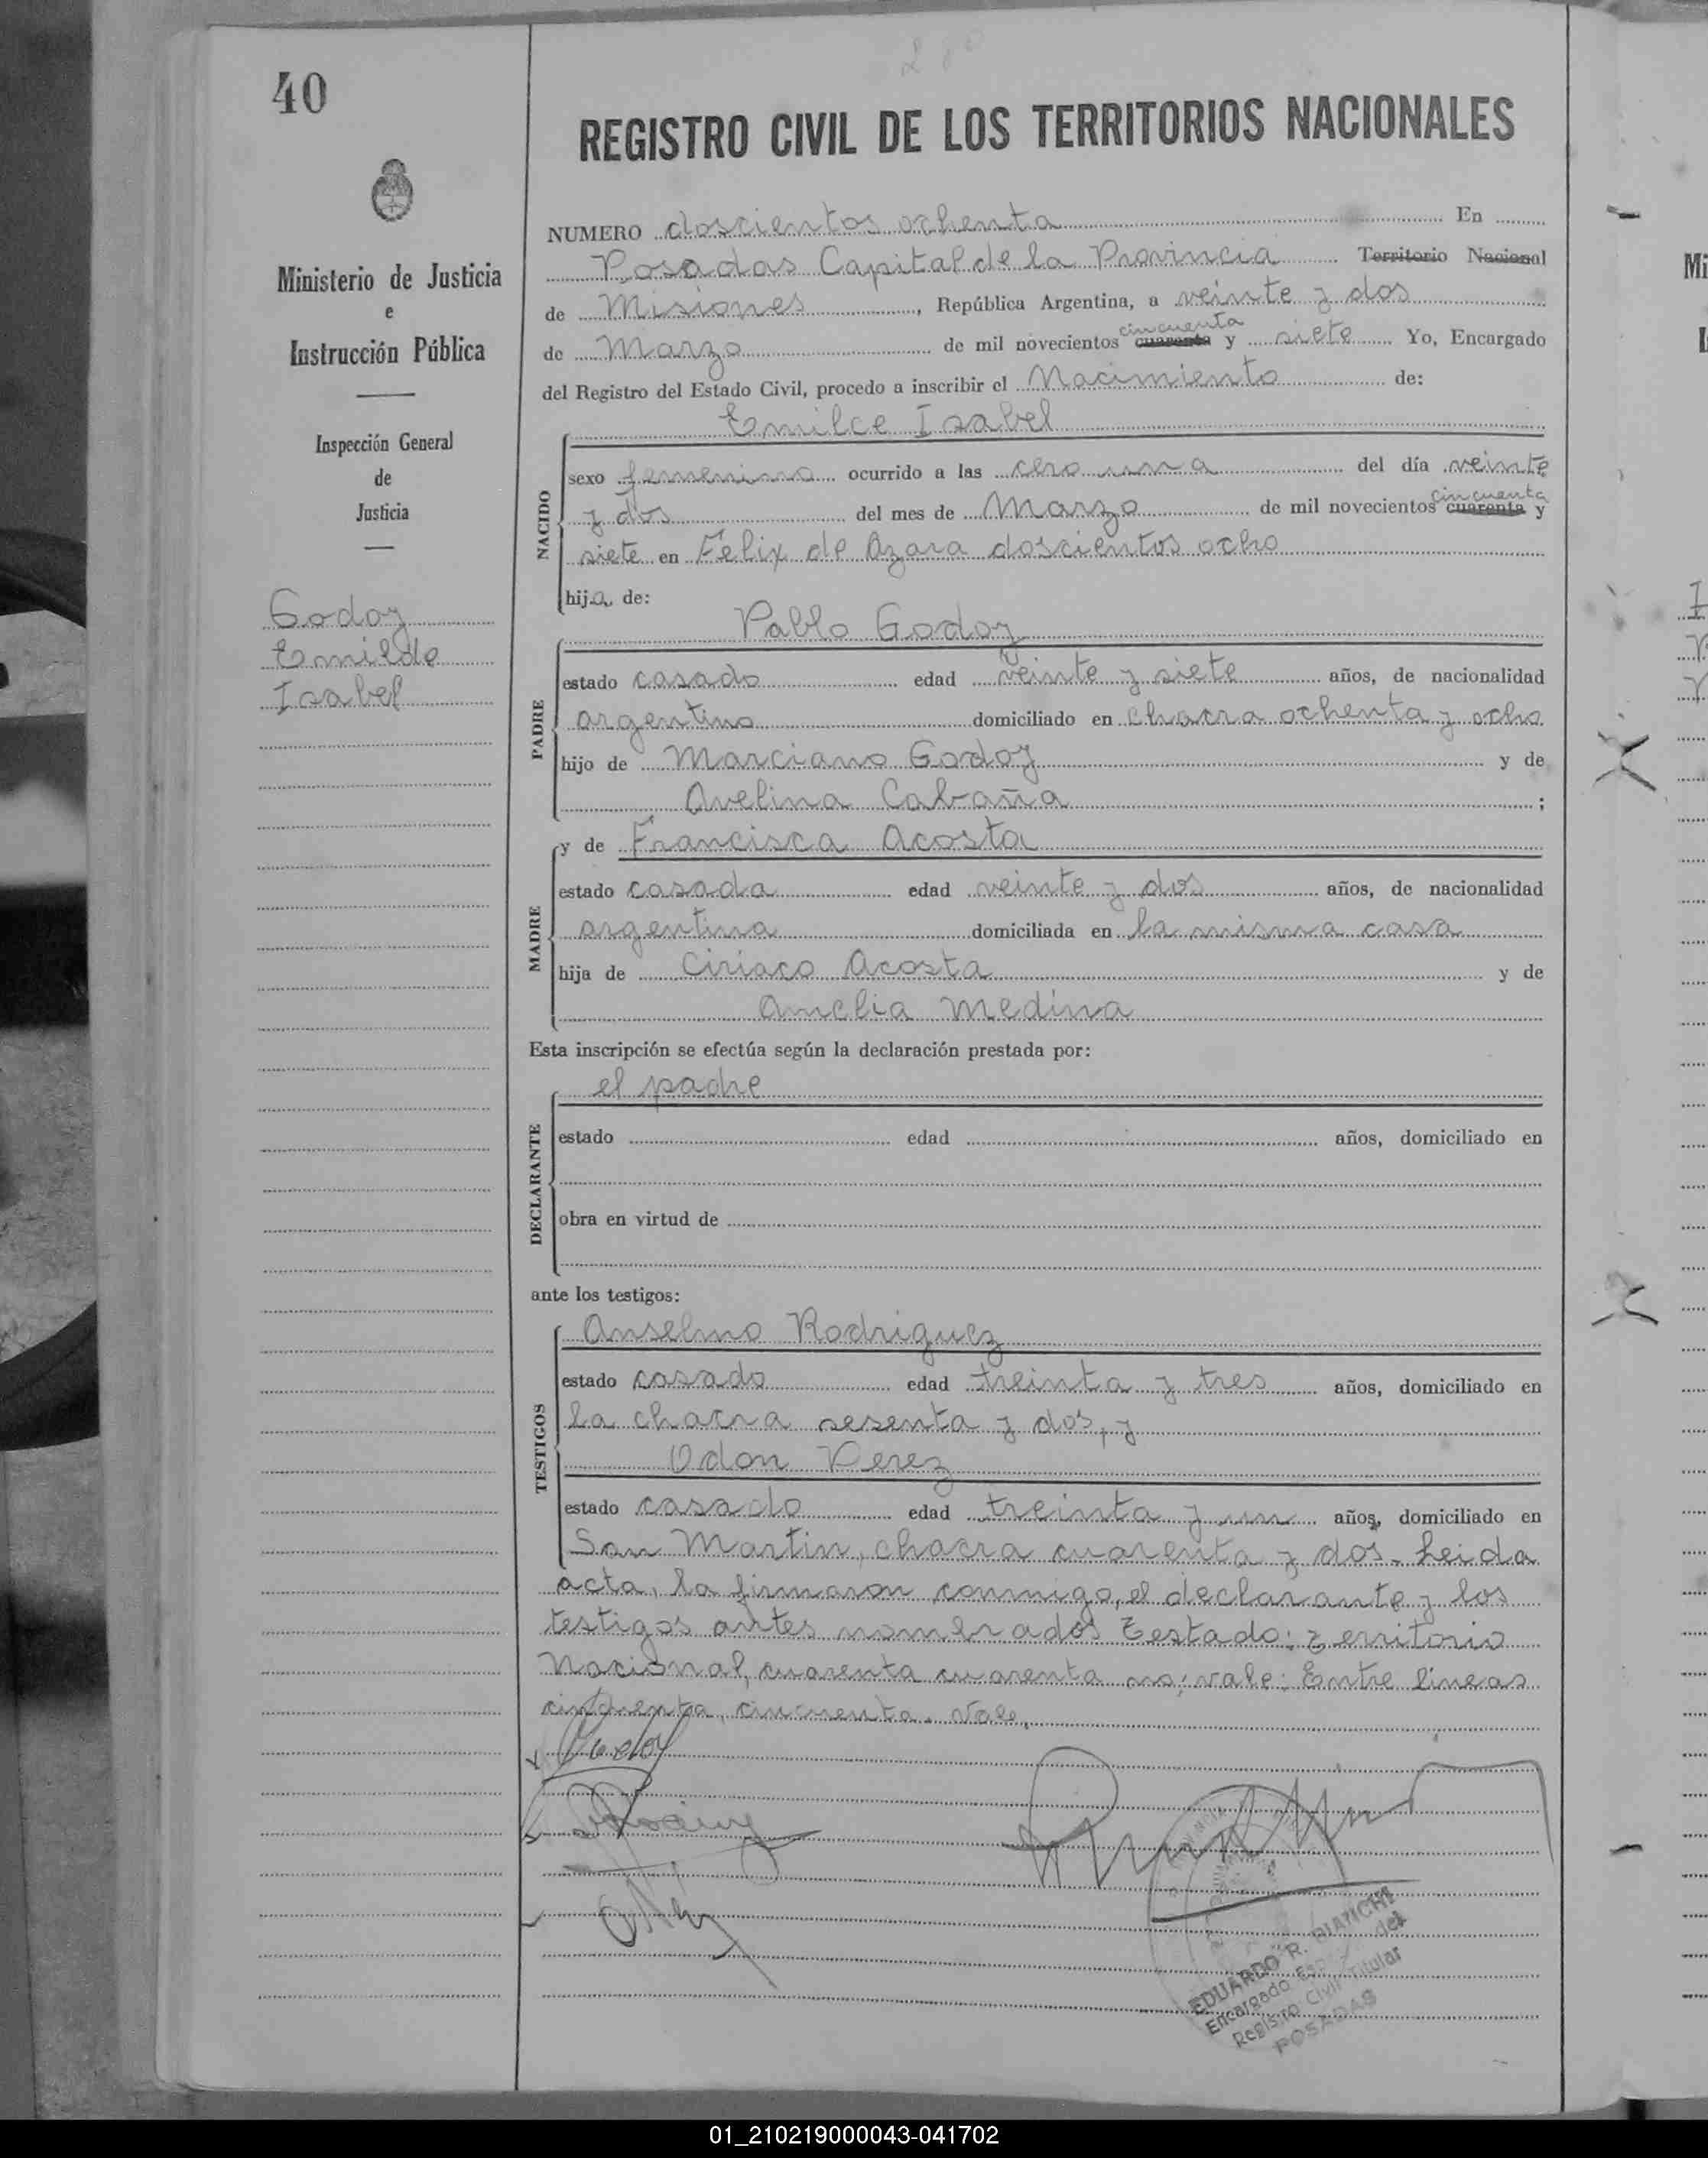 40
REGISTRO CIVIL DE LOS TERRITORIOS NACIONALES
Ministerio de Justicia
e
Instrucción Pública
Inspección General
de
Justicia
Godoy
Emilde
Isabel
NUMERO doscientos ochenta En
Posadas Capital de la Provincia Territorio Nacional
de Misiones, República Argentina, a veinte y dos
cincuenta
de Marzo de mil novecientos cuarenta y siete Yo, Encargado
del Registro del Estado Civil, procedo a inscribir el Nacimiento de:
Emilce Isabel
NACIDO
sexo femenino ocurrido a las cero una del día veinte
cincuenta
y dos del mes de Marzo de mil novecientos cuarenta y
siete en Felix de Azara doscientos ocho
hija de:
Pablo Godoy
PADRE
estado casado edad veinte y siete años, de nacionalidad
argentino domiciliado en chacra ochenta y ocho
hijo de Marciano Godoy y de
Avelina Cabaña ;
MADRE
y de Francisca Acosta
estado casada edad veinte y dos años, de nacionalidad
argentina domiciliada en la misma casa
hija de Ciriaco Acosta y de
Amelia Medina
Esta inscripción se efectúa según la declaración prestada por:
el padre
DECLARANTE
estado edad años, domiciliado en
obra en virtud de
ante los testigos:
Anselmo Rodriguez
TESTIGOS
estado casado edad treinta y tres años, domiciliado en
la chacra sesenta y dos, y
Odon Perez
estado casado edad treinta y un años, domiciliado en
San Martin, chacra cuarenta y dos. Leida
acta, la firmaron conmigo, el declarante y los
testigos antes nombrados Testado: Territorio
Nacional, cuarenta cuarenta no: vale: Entre lineas
cincuenta, cincuenta. Vale.
Godoy
EDUARDO R. BIANCHI
Encargado del
Registro Civil Titular
POSADAS
01_210219000043-041702